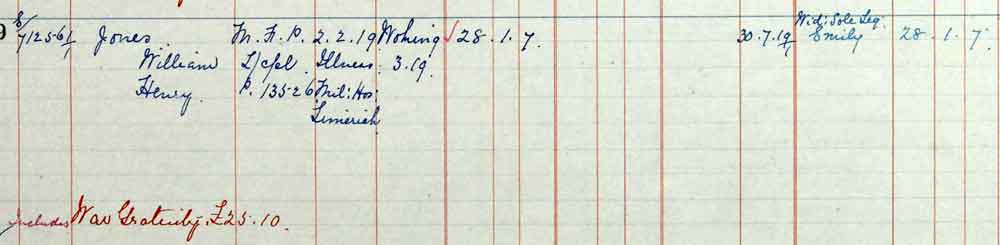 9 8/ 712561/1 Jones M.F.P. 2.2.19 Woking √ 28.1.7. 30.7.19 Wid: Sole Leg: Emily 28.1.7.
William L/cpl. Illness 3.19.
Henry. P.13526 Mil: Hos:
Limerick
Includes War Gratuity £25.10.